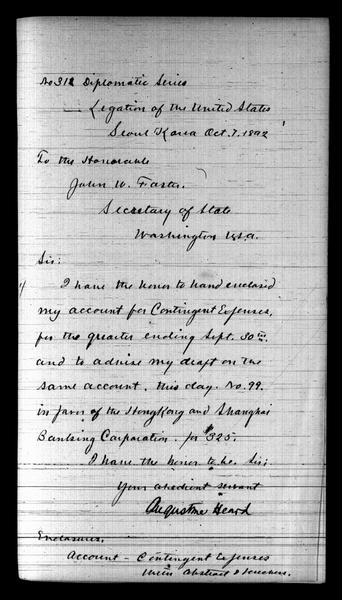 No 312 Diplomatic Series
Legation of the United States
Seoul Korea Oct. 7. 1892
To the Honorable
John W. Foster.
Secretary of State
Washington U.S.A.
Sir:
I have the honor to hand enclosed
my account for Contingent Expenses,
for the quarter ending Sept. 30th.
and to advise my draft on the
same account, this day. No. 99.
in favor of the HongKong and Shanghai
Banking Corporation. for $325.
I have the honor to be. Sir:
Your obedient servant
Augustine Heard
Enclosures.
Account - Contingent Expenses
with Abstract & Vouchers.